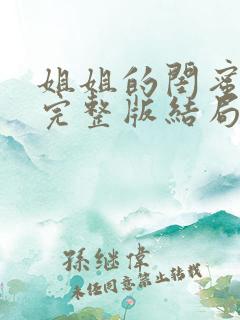 姐姐的閨蜜
完整版結局
孫继偉
未经同意禁止转载